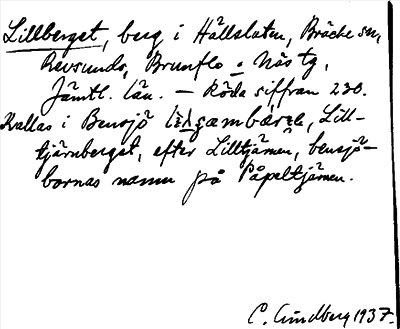 Lillberget, berg i Hällslåten, Bräcke sn,
Revsunds, Brunflo o. Näs tg,
Jämtl. län. — Röda siffran 230.
Kallas i Bensjö Lill-
tjärnberget, efter Lilltjärnen, bensjö-
bornas namn på Påpeltjärnen.
C. Lindberg 1937.